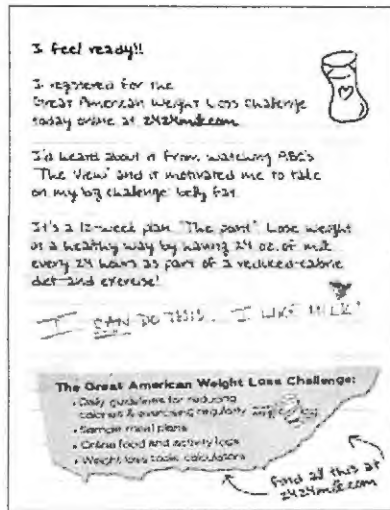 I feel ready!!
I registered for the
Great American Weight Loss Challenge
today online at 2424milk.com
I'd heard about it from watching ABC's
"The View" and it motivated me to take
on my big challenge: belly fat.
It's a 12-week plan. "The point": Lose weight
in a healthy way by having 24 oz. of milk
every 24 hours as part of a reduced-calorie
diet and exercise!
I CAN DO THIS. I LIKE MILK!
The Great American Weight Loss Challenge:
• Daily guidelines for reducing
calories & exercising regularly
• Sample meal plans
• Online food and activity logs
• Weight loss tools, calculators
find all this at
2424milk.com